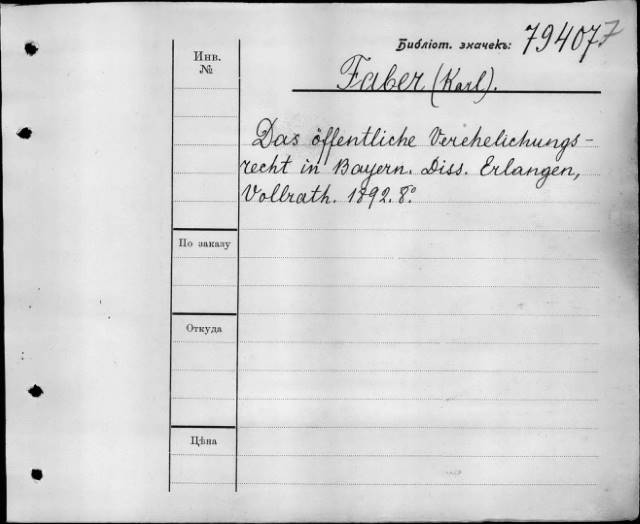 Библіот. значекъ: 794077
Инв.
№
Faber (Karl).
Das öffentliche Verehelichungs-
recht in Bayern. Diss. Erlangen,
Vollrath. 1892. 8º
По заказу
Откуда
Цѣна